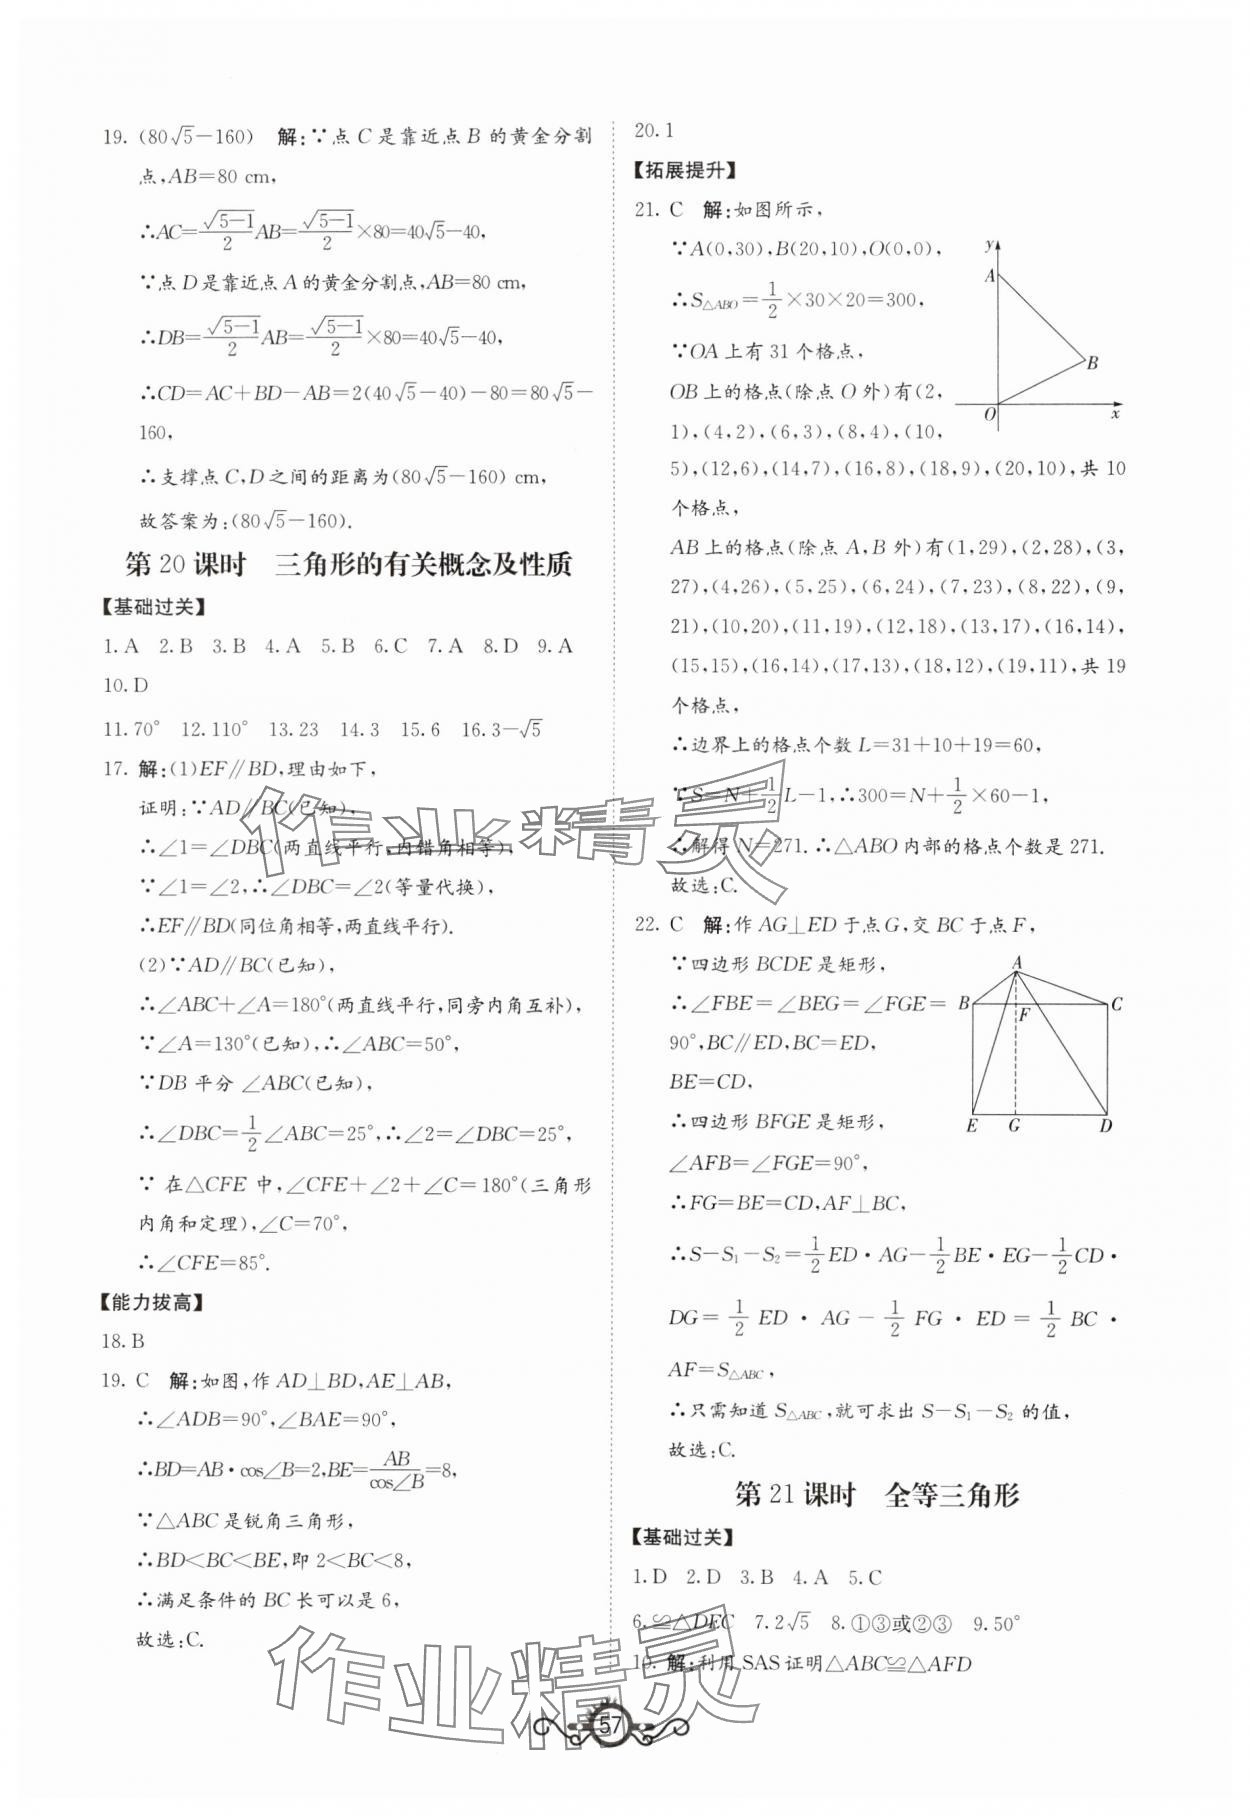 19. (80√5－160)　解:∵点 C 是靠近点 B 的黄金分割
点,AB=80 cm,
∴AC=(√5-1)/2 AB=(√5-1)/2×80=40√5－40,
∵点 D 是靠近点 A 的黄金分割点,AB=80 cm,
∴DB=(√5-1)/2 AB=(√5-1)/2×80=40√5－40,
∴CD=AC+BD－AB=2(40√5－40)－80=80√5－
160,
∴支撑点 C,D 之间的距离为(80√5－160) cm,
故答案为:(80√5－160).
第 20 课时　三角形的有关概念及性质
【基础过关】
1. A　2. B　3. B　4. A　5. B　6. C　7. A　8. D　9. A
10. D
11. 70°　12. 110°　13. 23　14. 3　15. 6　16. 3－√5
17. 解:(1)EF∥BD,理由如下,
证明:∵AD∥BC(已知),
∴∠1=∠DBC(两直线平行,内错角相等),
∵∠1=∠2,∴∠DBC=∠2(等量代换),
∴EF∥BD(同位角相等,两直线平行).
(2)∵AD∥BC(已知),
∴∠ABC+∠A=180°(两直线平行,同旁内角互补),
∵∠A=130°(已知),∴∠ABC=50°,
∵DB 平分 ∠ABC(已知),
∴∠DBC=1/2∠ABC=25°,∴∠2=∠DBC=25°,
∵ 在△CFE 中,∠CFE+∠2+∠C=180°(三角形
内角和定理),∠C=70°,
∴∠CFE=85°.
【能力拔高】
18. B
19. C　解:如图,作 AD⊥BD,AE⊥AB,
∴∠ADB=90°,∠BAE=90°,
∴BD=AB·cos∠B=2,BE=AB/cos∠B=8,
∵△ABC 是锐角三角形,
∴BD<BC<BE,即 2<BC<8,
∴满足条件的 BC 长可以是 6,
故选:C.
20. 1
【拓展提升】
21. C　解:如图所示,
∵A(0,30),B(20,10),O(0,0),
∴S△ABO=1/2×30×20=300,
∵OA 上有 31 个格点,
OB 上的格点(除点 O 外)有(2,
1),(4,2),(6,3),(8,4),(10,
5),(12,6),(14,7),(16,8),(18,9),(20,10),共 10
个格点,
AB 上的格点(除点 A,B 外)有(1,29),(2,28),(3,
27),(4,26),(5,25),(6,24),(7,23),(8,22),(9,
21),(10,20),(11,19),(12,18),(13,17),(16,14),
(15,15),(16,14),(17,13),(18,12),(19,11),共 19
个格点,
∴边界上的格点个数 L=31+10+19=60,
∵S=N+1/2L－1,∴300=N+1/2×60－1,
∴解得 N=271. ∴△ABO 内部的格点个数是 271.
故选:C.
y
A
B
O
x
22. C　解:作 AG⊥ED 于点 G,交 BC 于点 F,
∵四边形 BCDE 是矩形,
∴∠FBE=∠BEG=∠FGE=
90°,BC∥ED,BC=ED,
BE=CD,
∴四边形 BFGE 是矩形,
∠AFB=∠FGE=90°,
∴FG=BE=CD,AF⊥BC,
∴S－S₁－S₂=1/2ED·AG－1/2BE·EG－1/2CD·
DG=1/2ED·AG－1/2FG·ED=1/2BC·
AF=S△ABC,
∴只需知道 S△ABC,就可求出 S－S₁－S₂ 的值,
故选:C.
A
B
F
C
E
G
D
第 21 课时　全等三角形
【基础过关】
1. D　2. D　3. B　4. A　5. C
6. ≌△DEC　7. 2√5　8. ①③或②③　9. 50°
10. 解:利用 SAS 证明△ABC≌△AFD
57
作业精灵
作业精灵